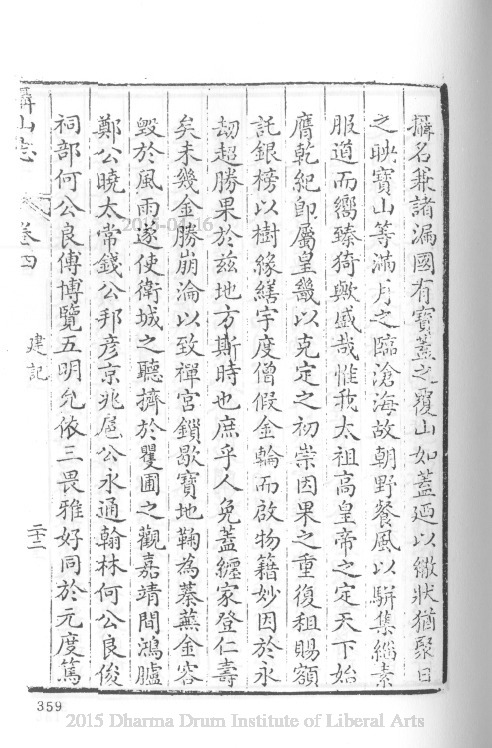 攝名兼諸漏國有寶蓋之覆山如蓋廼以繖狀猶聚日
之映寶山等滿月之臨滄海故朝野餐風以駢集緇素
服道而嚮臻猗歟盛哉惟我太祖高皇帝之定天下始
膺乾紀卽屬皇畿以克定之初崇因果之重復租賜額
託銀榜以樹緣繕宇度僧假金輪而啟物籍妙因於永
劫超勝果於茲地方斯時也庶乎人免蓋纏家登仁壽
矣未幾金勝崩淪以致禪宮鎖歇寶地鞠為蓁蕪金容
毀於風雨遂使衛城之聽擠於矍圃之觀嘉靖間鴻臚
鄭公曉太常錢公邦彥京兆扈公永通翰林何公良俊
祠部何公良傅博覽五明允依三畏雅好同於元度篤
攝山志 卷四 建記 二十二
359
2015 Dharma Drum Institute of Liberal Arts